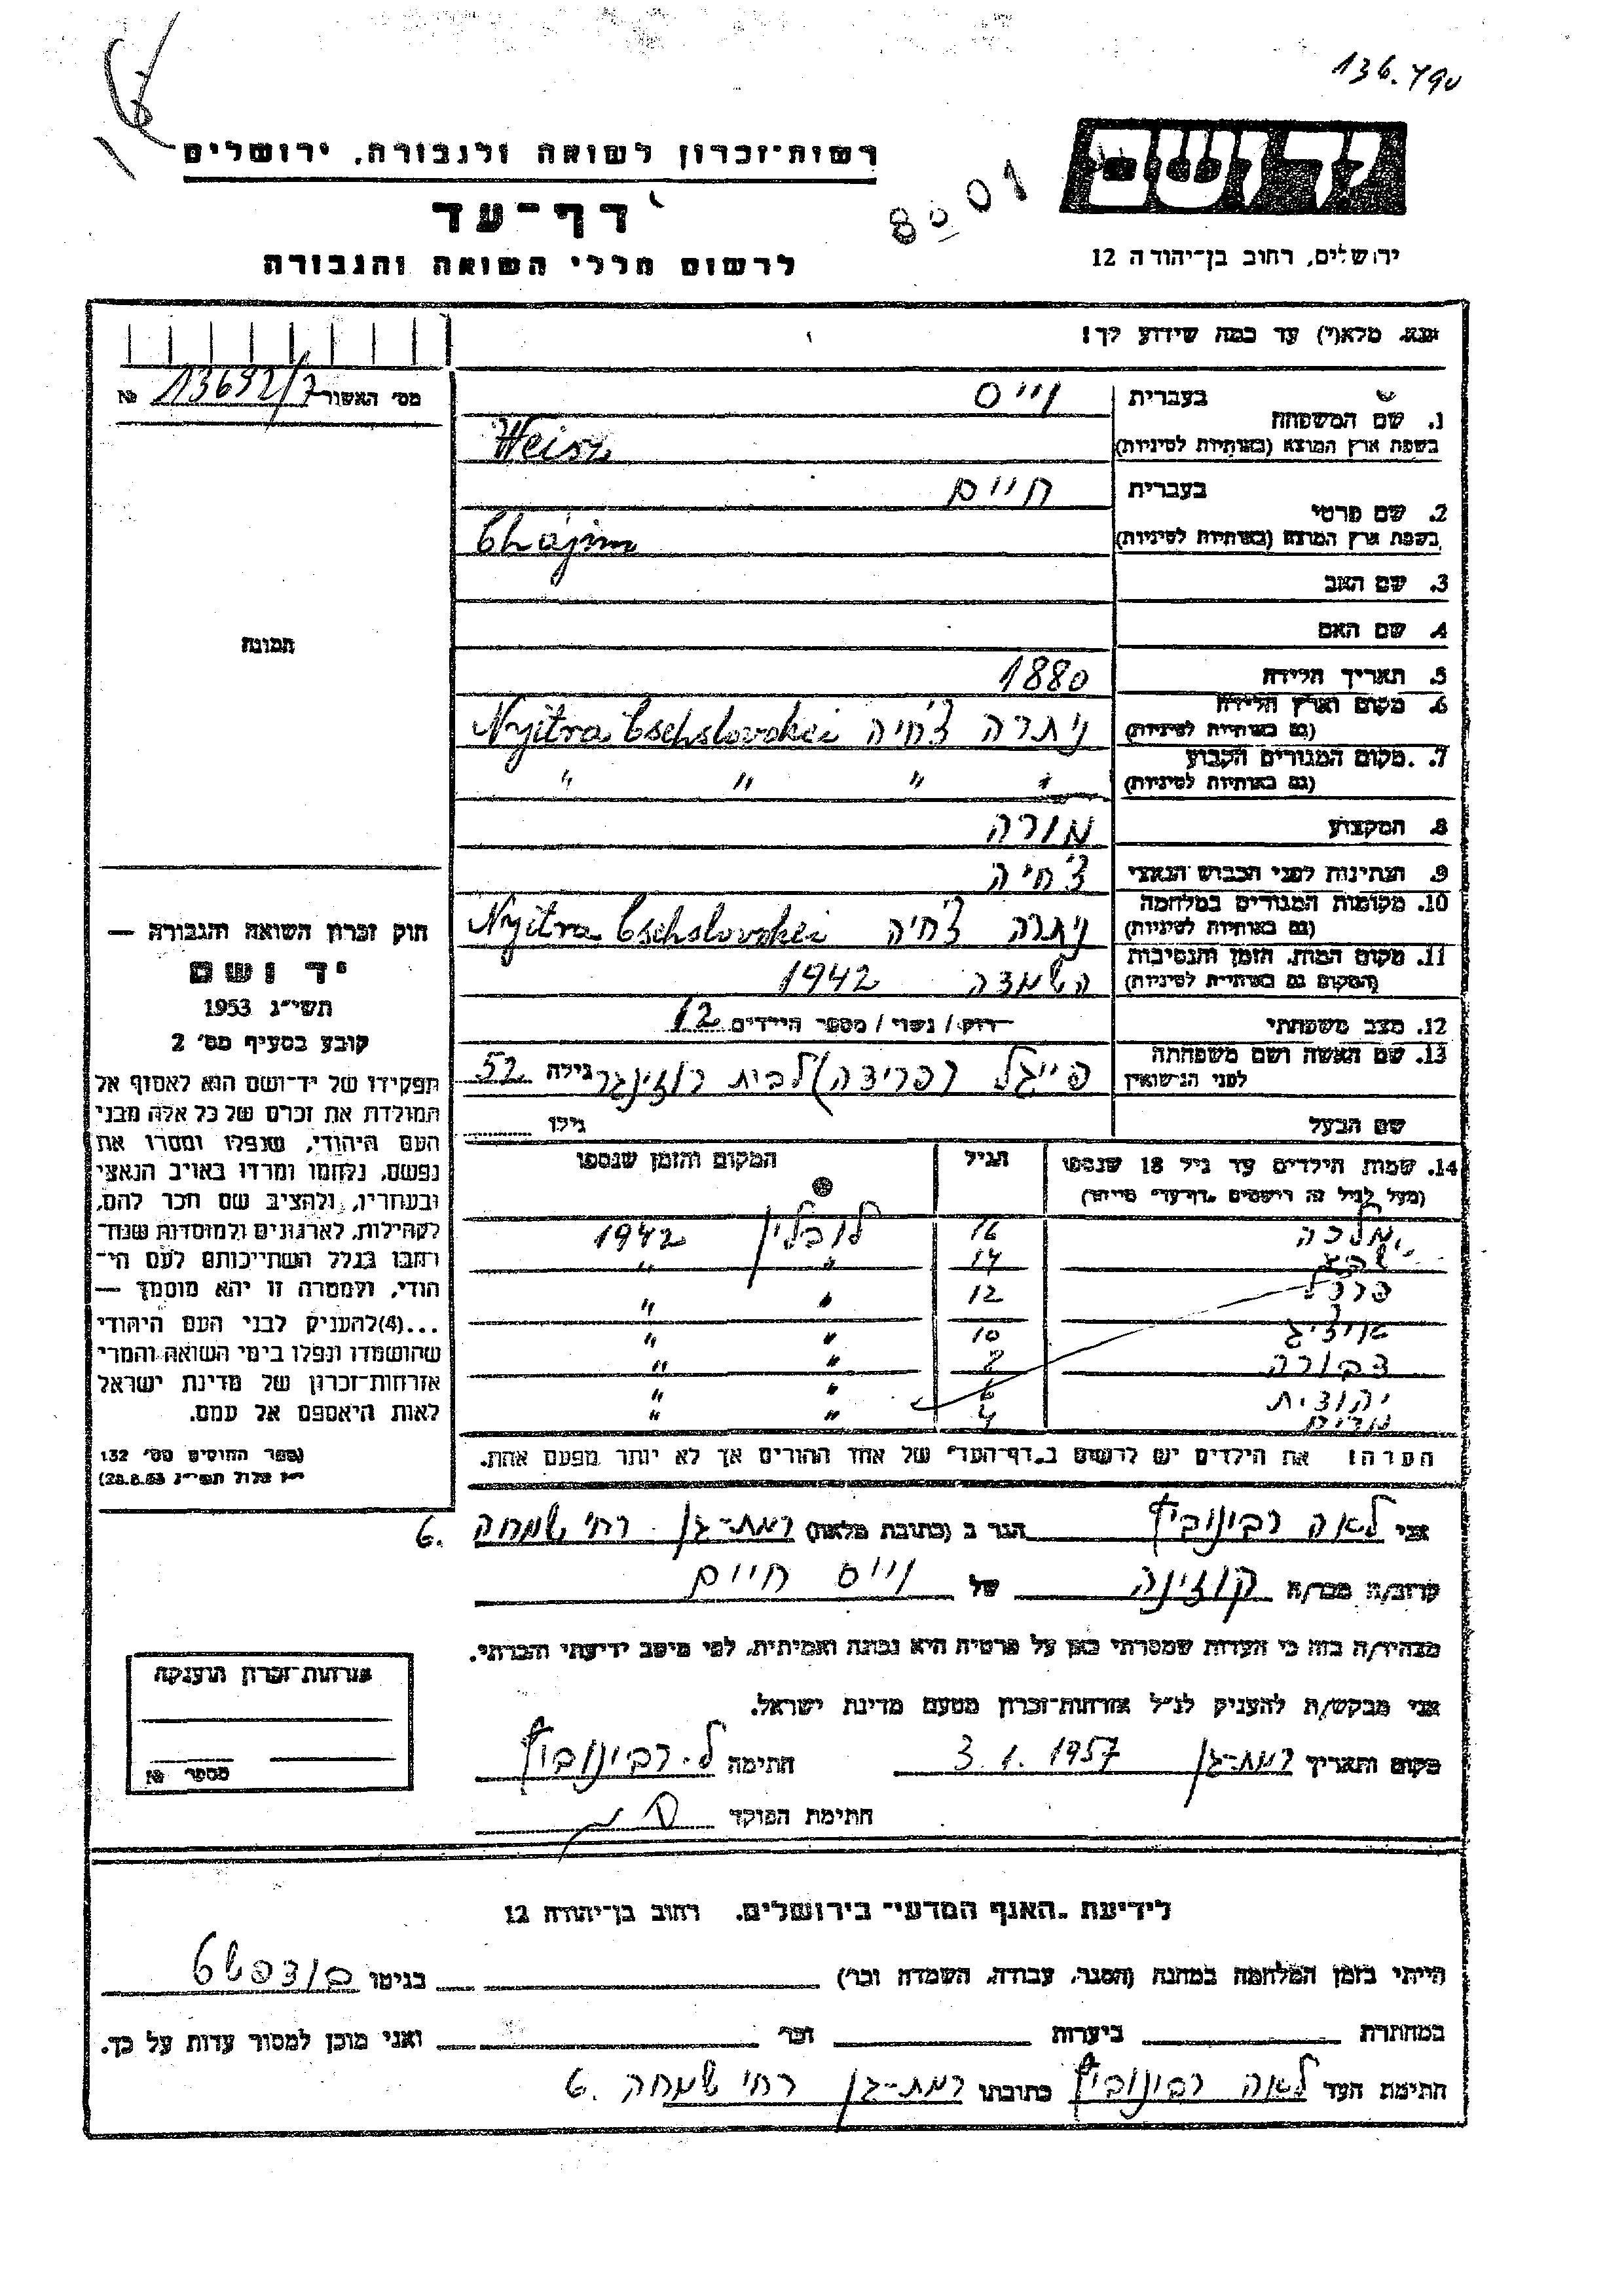 136.790
רשות-זכרון לשואה ולגבורה, ירושלים
דף-עד
לרשום חללי השואה והגבורה
8001
ירושלים, רחוב בן-יהודה 12
אנא, מלא(י) עד כמה שידוע לך!
מס' האשור 13692/7 №
בעברית וייס
1. שם המשפחה
בשפת ארץ המוצא (באותיות לטיניות) Weisz
בעברית חיים
2. שם פרטי
בשפת ארץ המוצא (באותיות לטיניות) Chájim
3. שם האב
4. שם האם
תמונה
5. תאריך הלידה 1880
6. מקום וארץ הלידה
(גם באותיות לטיניות) ניתרה צ'חיה Nyitra Cschslovakei
7. מקום המגורים הקבוע
(גם באותיות לטיניות) " " " "
8. המקצוע מורה
9. הנתינות לפני הכבוש הנאצי צ'חיה
10. מקומות המגורים במלחמה
(גם באותיות לטיניות) ניתרה צ'חיה Nyitra Cschslovakei
11. מקום המות, הזמן והנסיבות
(המקום גם באותיות לטיניות) השמדה 1942
12. מצב משפחתי רווק / נשוי / מספר הילדים 12
13. שם האשה ושם משפחתה
לפני הנישואין פייגל (פרידה) לבית רוזינגר גילה 52
שם הבעל גילו
14. שמות הילדים עד גיל 18 שנספו הגיל המקום והזמן שנספו
(מעל לגיל זה רושמים "דף-עד" מיוחד)
מלכה 16 לובלין 1942
14 " "
פרל 12 " "
10 " "
דבורה " "
יהודית 6 " "
מרים 4 " "
הערה: את הילדים יש לרשום ב"דף-העד" של אחד ההורים אך לא יותר מפעם אחת.
חוק זכרון השואה והגבורה —
יד ושם
תשי"ג 1953
קובע בסעיף מס' 2
תפקידו של יד-ושם הוא לאסוף אל
המולדת את זכרם של כל אלה מבני
העם היהודי, שנפלו ומסרו את
נפשם, נלחמו ומרדו באויב הנאצי
ובעוזריו, ולהציב שם וזכר להם,
לקהילות, לארגונים ולמוסדות שנח-
רבו בגלל השתייכותם לעם הי-
הודי, ולמטרה זו יהא מוסמך —
...(4) להעניק לבני העם היהודי
שהושמדו ונפלו בימי השואה והמרי
אזרחות-זכרון של מדינת ישראל
לאות היאספם אל עמם.
(ספר החוקים מס' 132
י"ז אלול תשי"ג 28.8.53)
אני לאה רבינוביץ הגר ב (כתובת מלאה) רמת-גן רח' שמחה 6.
קרוב/ה מכר/ה קוזינה של וייס חיים
מצהיר/ה בזה כי העדות שמסרתי כאן על פרטיה היא נכונה ואמיתית, לפי מיטב ידיעתי והכרתי.
אני מבקש/ת להעניק לנ"ל אזרחות-זכרון מטעם מדינת ישראל.
מקום ותאריך רמת-גן 3.1.1957 חתימה ל. רבינוביץ
חתימת הפוקד
אזרחות-זכרון הוענקה
מספר №
לידיעת "האגף המדעי" בירושלים, רחוב בן-יהודה 12
הייתי בזמן המלחמה במחנה (הסגר, עבודה, השמדה וכו') בגיטו בודפשט
במחתרת ביערות וכו' ואני מוכן למסור עדות על כך.
חתימת העד לאה רבינוביץ כתובתו רמת-גן רח' שמחה 6.